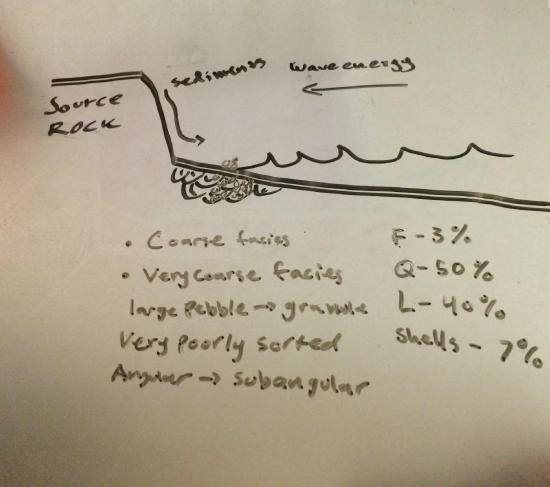 sediments
wave energy
Source
ROCK
• Coarse facies
• Very coarse facies
large Pebble → granule
Very poorly sorted
Angular → subangular
F - 3%
Q - 50%
L - 40%
Shells - 7%